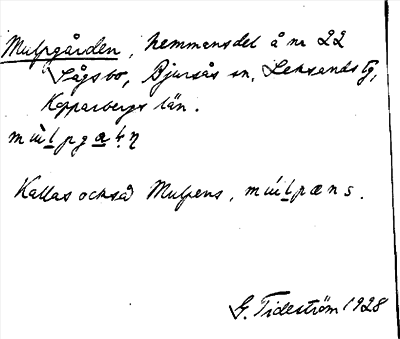 Mulpgården, hemmansdel å nr 22
Lågsbo, Bjursås sn, Leksands tg,
Kopparbergs län.
Kallas också Mulpens,
G. Tideström 1928